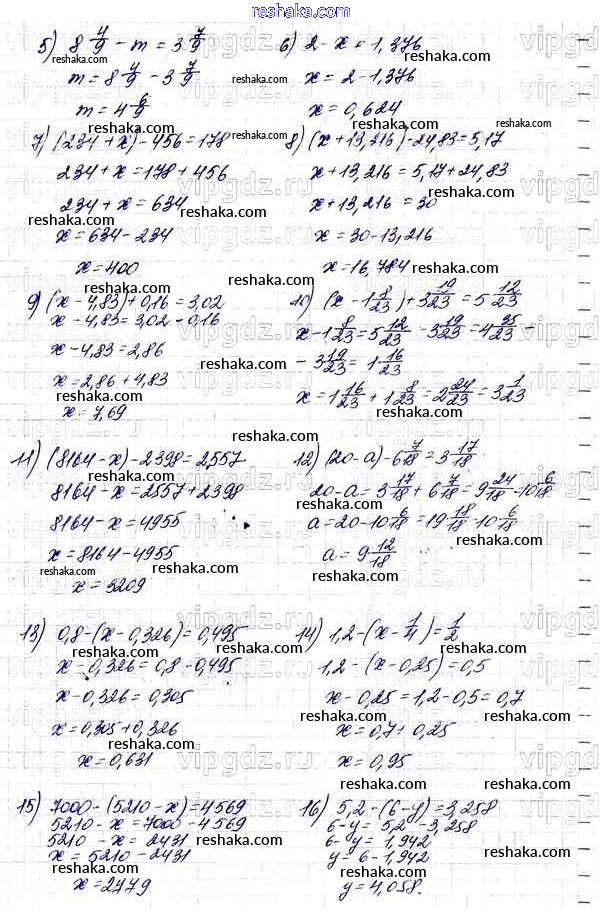 reshaka.com
5) 8 4/9 - m = 3 7/9
m = 8 4/9 - 3 7/9
m = 4 6/9
6) 2 - x = 1,376
x = 2 - 1,376
x = 0,624
7) (234 + x) - 456 = 178
234 + x = 178 + 456
234 + x = 634
x = 634 - 234
x = 400
8) (x + 13,216) - 24,83 = 5,17
x + 13,216 = 5,17 + 24,83
x + 13,216 = 30
x = 30 - 13,216
x = 16,784
9) (x - 4,83) + 0,16 = 3,02
x - 4,83 = 3,02 - 0,16
x - 4,83 = 2,86
x = 2,86 + 4,83
x = 7,69
10) (x - 1 8/23) + 3 19/23 = 5 12/23
x - 1 8/23 = 5 12/23 - 3 19/23 = 4 35/23 -
- 3 19/23 = 1 16/23
x = 1 16/23 + 1 8/23 = 2 24/23 = 3 1/23
11) (8164 - x) - 2398 = 2557
8164 - x = 2557 + 2398
8164 - x = 4955
x = 8164 - 4955
x = 3209
12) (20 - a) - 6 7/18 = 3 17/18
20 - a = 3 17/18 + 6 7/18 = 9 24/18 = 10 6/18
a = 20 - 10 6/18 = 19 18/18 - 10 6/18
a = 9 12/18
13) 0,8 - (x - 0,326) = 0,495
x - 0,326 = 0,8 - 0,495
x - 0,326 = 0,305
x = 0,305 + 0,326
x = 0,631
14) 1,2 - (x - 1/4) = 1/2
1,2 - (x - 0,25) = 0,5
x - 0,25 = 1,2 - 0,5 = 0,7
x = 0,7 + 0,25
x = 0,95
15) 7000 - (5210 - x) = 4569
5210 - x = 7000 - 4569
5210 - x = 2431
x = 5210 - 2431
x = 2779
16) 5,2 - (6 - y) = 3,258
6 - y = 5,2 - 3,258
6 - y = 1,942
y = 6 - 1,942
y = 4,058.